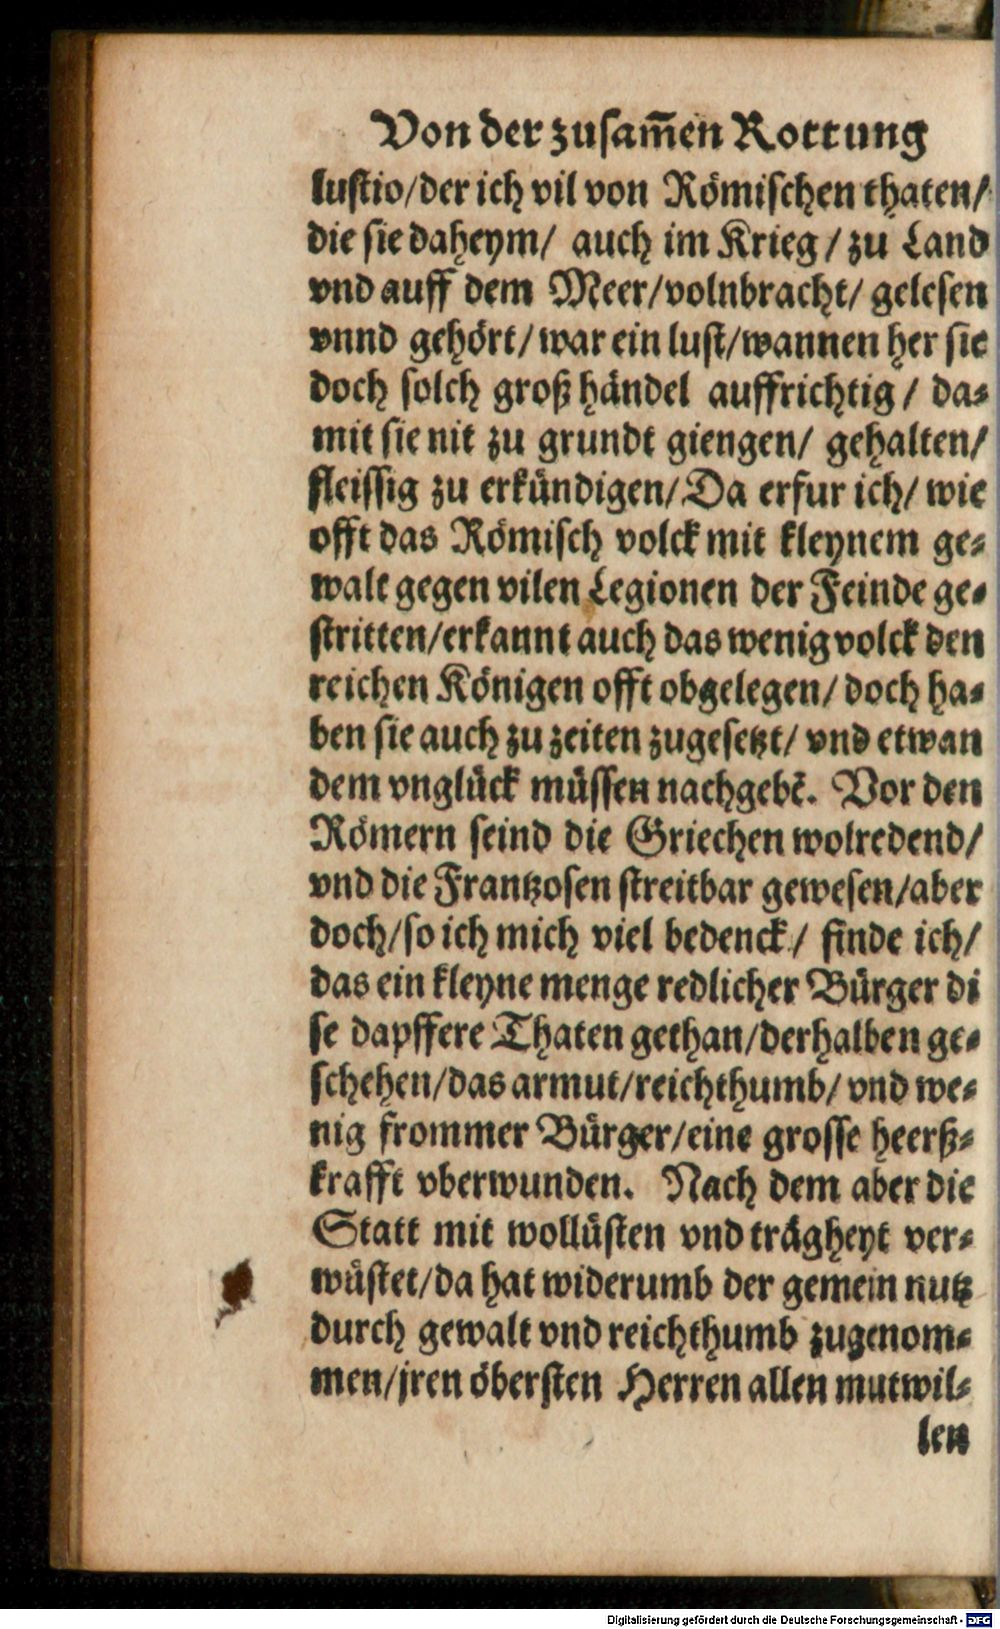 Von der zusam̄en Rottung
lustio/der ich vil von Römischen thaten/
die sie daheym/ auch im Krieg/ zu Land
vnd auff dem Meer/volnbracht/ gelesen
vnnd gehört/war ein lust/wannen her sie
doch solch groß händel auffrichtig/ da-
mit sie nit zu grundt giengen/ gehalten/
fleissig zu erkündigen/Da erfur ich/ wie
offt das Römisch volck mit kleynem ge-
walt gegen vilen Legionen der Feinde ge-
stritten/erkannt auch das wenig volck den
reichen Königen offt obgelegen/ doch ha-
ben sie auch zu zeiten zugesetzt/ vnd etwan
dem vnglück müssen nachgebē. Vor den
Römern seind die Griechen wolredend/
vnd die Frantzosen streitbar gewesen/aber
doch/so ich mich viel bedenck/ finde ich/
das ein kleyne menge redlicher Bürger di
se dapffere Thaten gethan/derhalben ge-
schehen/das armut/reichthumb/ vnd we-
nig frommer Bürger/eine grosse heerß-
krafft vberwunden. Nach dem aber die
Statt mit wollüsten vnd trägheyt ver-
wüstet/da hat widerumb der gemein nutz
durch gewalt vnd reichthumb zugenom-
men/jren öbersten Herren allen mutwil-
len
Digitalisierung gefördert durch die Deutsche Forschungsgemeinschaft - DFG